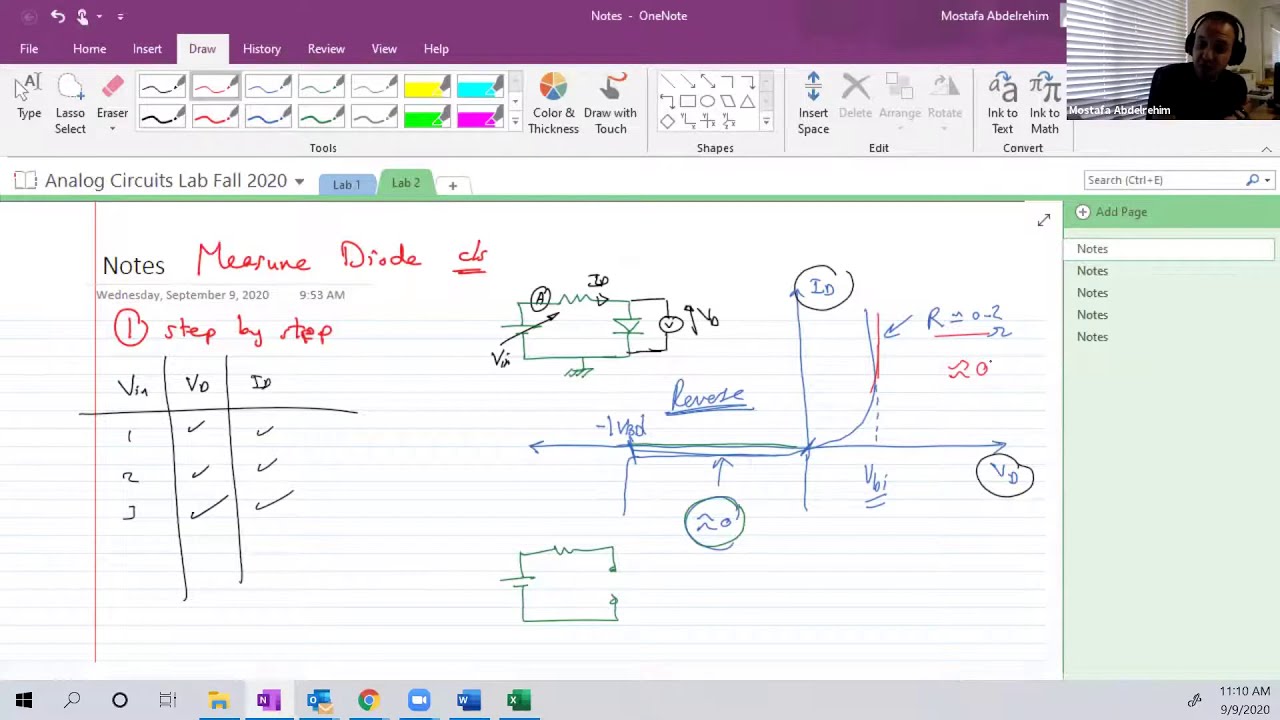 Notes - OneNote
Mostafa Abdelrehim
File Home Insert Draw History Review View Help
Type
Lasso Select
Eraser
Color & Thickness
Draw with Touch
Insert Space
Delete
Arrange
Rotate
Ink to Text
Ink to Math
Tools
Shapes
Edit
Convert
Mostafa Abdelrehim
Analog Circuits Lab Fall 2020
Lab 1
Lab 2
Search (Ctrl+E)
Add Page
Notes
Notes
Notes
Notes
Notes
Notes
Measure Diode
Wednesday, September 9, 2020 9:53 AM
① step by step
Vin VD ID
1 ✓ ✓
2 ✓ ✓
3 ✓ ✓
A
ID
Vin
V
VD
ID
R ≈ 0-2 Ω
≈ 0
Reverse
-|VBd|
Vbi
VD
≈ 0
11:10 AM
9/9/2020